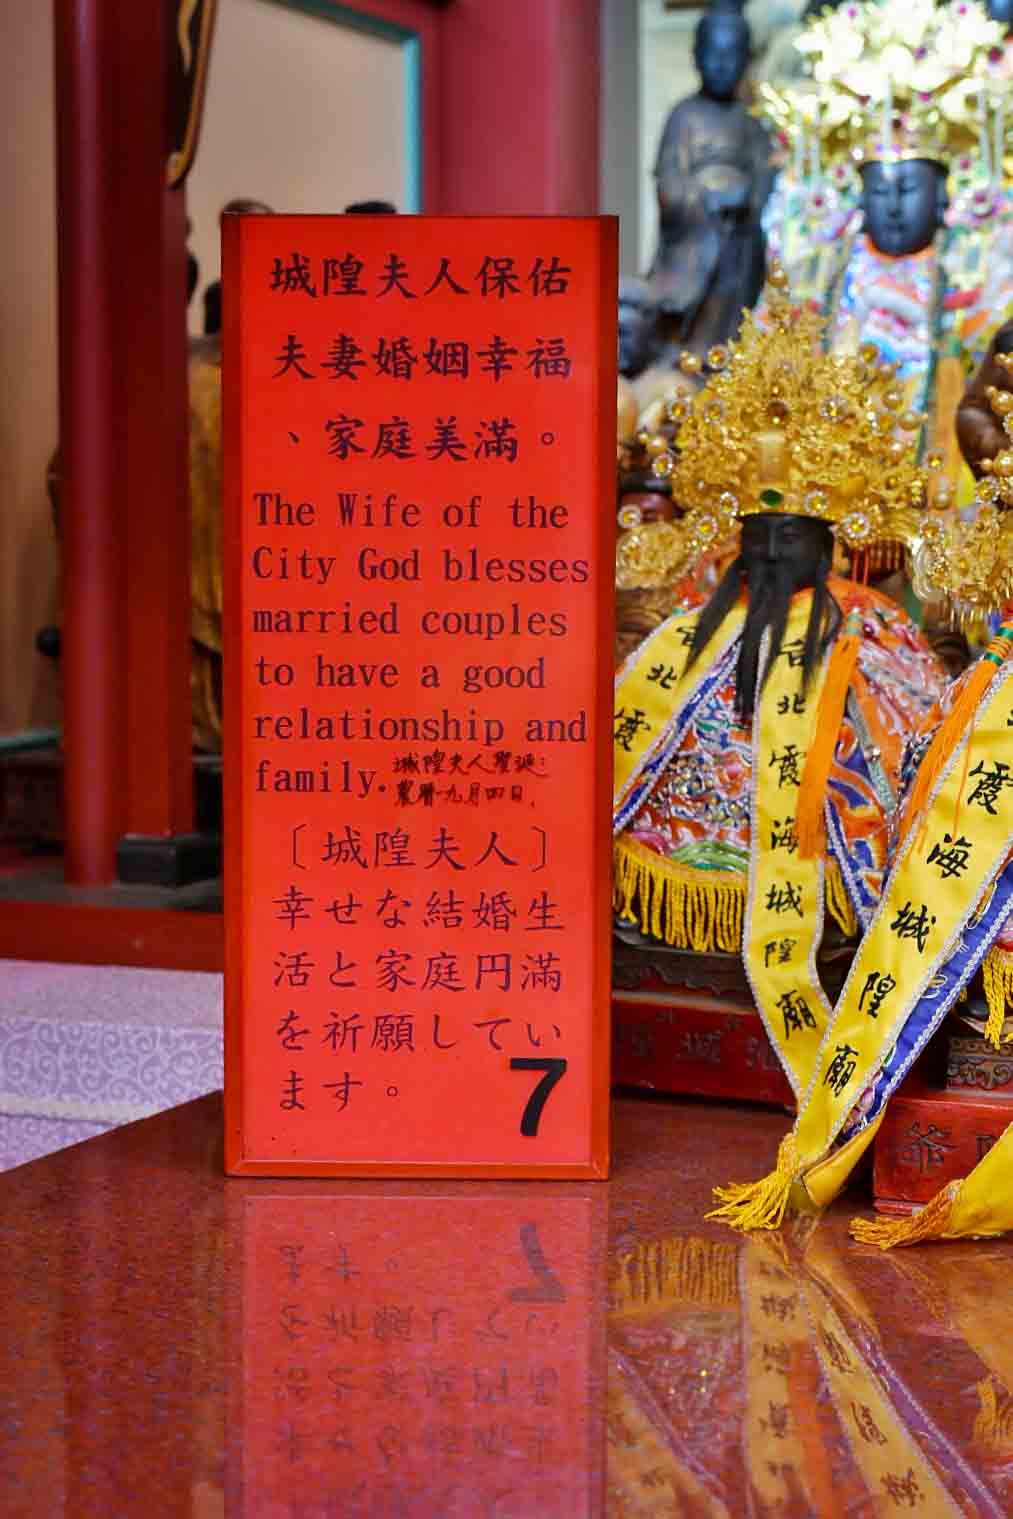 城隍夫人保佑
夫妻婚姻幸福
、家庭美滿。
The Wife of the
City God blesses
married couples
to have a good
relationship and
family.
城隍夫人聖誕：
農曆九月四日.
〔城隍夫人〕
幸せな結婚生
活と家庭円満
を祈願してい
ます。
7
北霞
台北霞海城隍廟
霞海城隍廟
爺